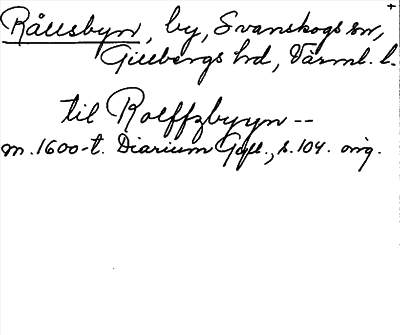 Rållsbyn, by, Svanskogs sn,
Gillbergs hd, Värml. l.
til Rolffzbyyn --
m. 1600-t. Diarium Gyll., s. 104. orig.